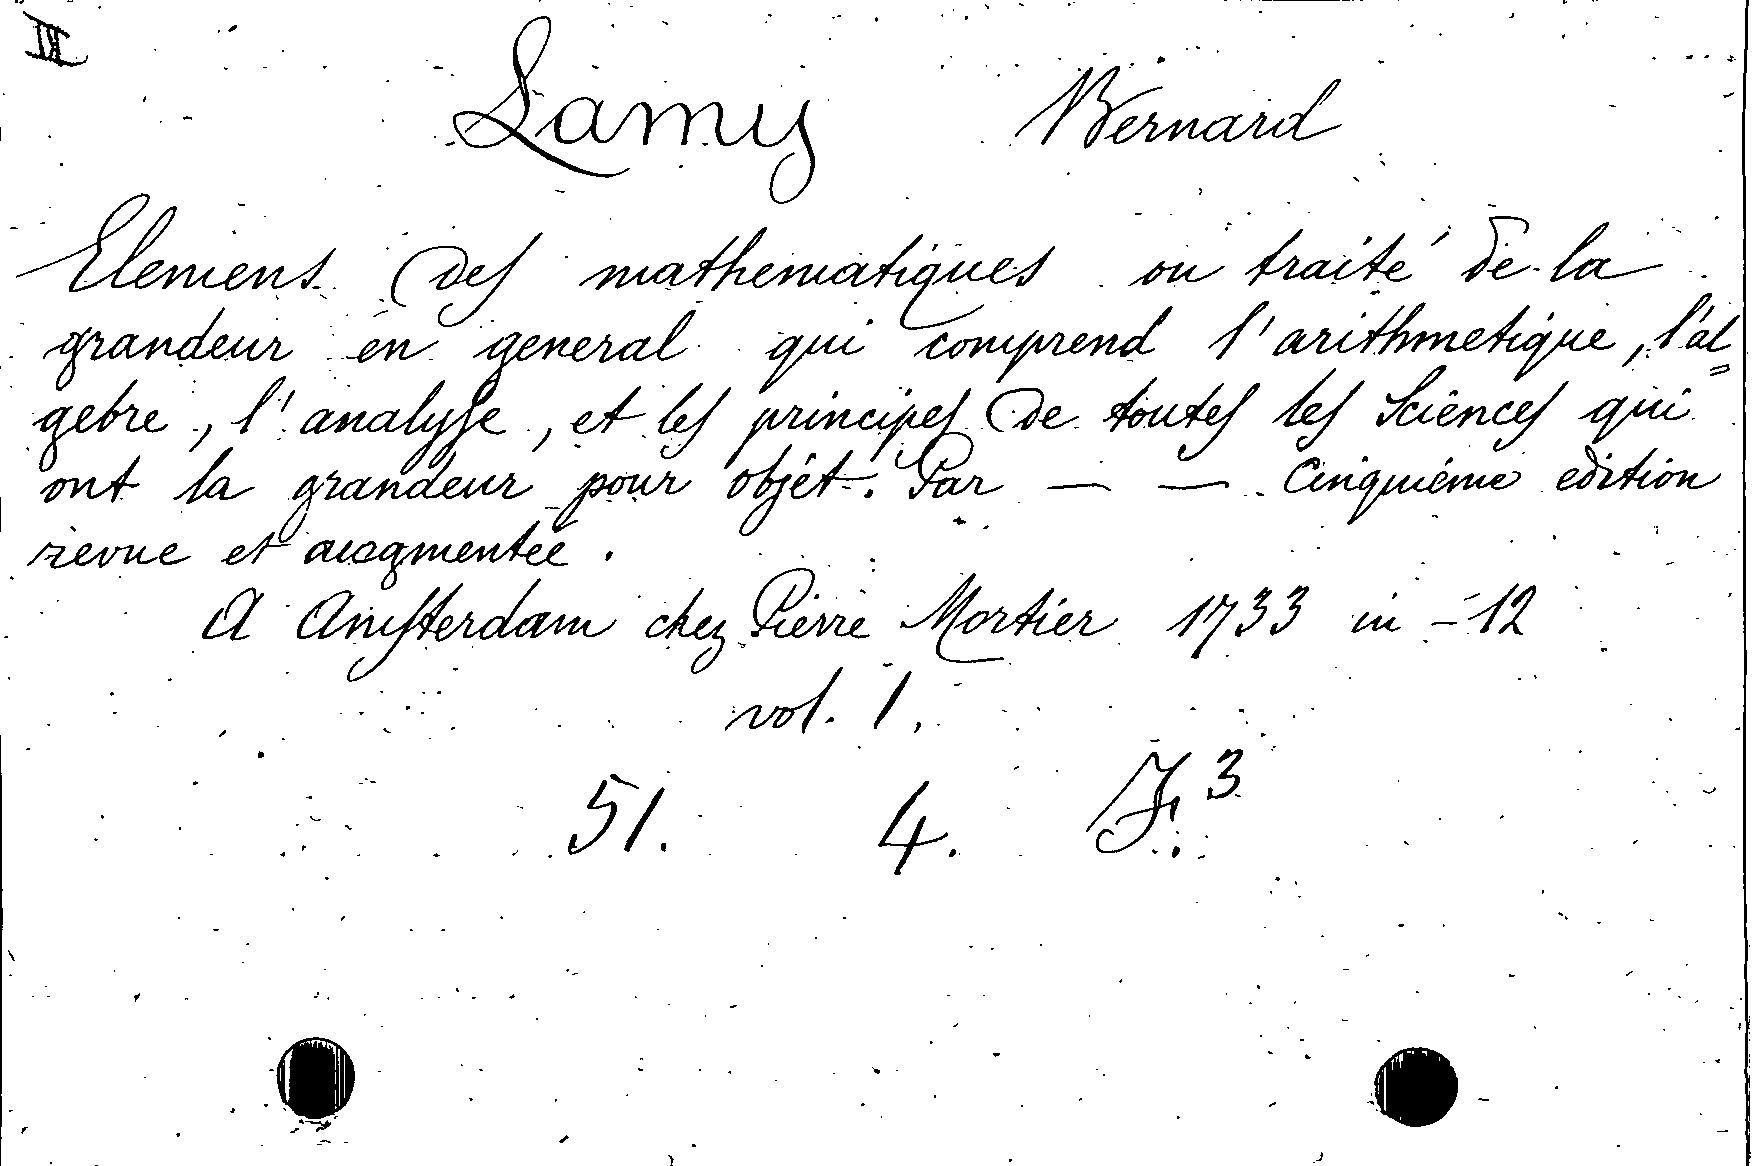 II
Lamy Bernard
Elemens des mathematiques ou traité de la
grandeur en general qui comprend l'arithmetique, l'al=
gebre, l'analyse, et les principes de toutes les Sciences qui
ont la grandeur pour objet. Par — — Cinquiéme edition
revue et augmentée.
A Amsterdam chez Pierre Mortier 1733 in-12
vol. 1.
51. 4. F.3